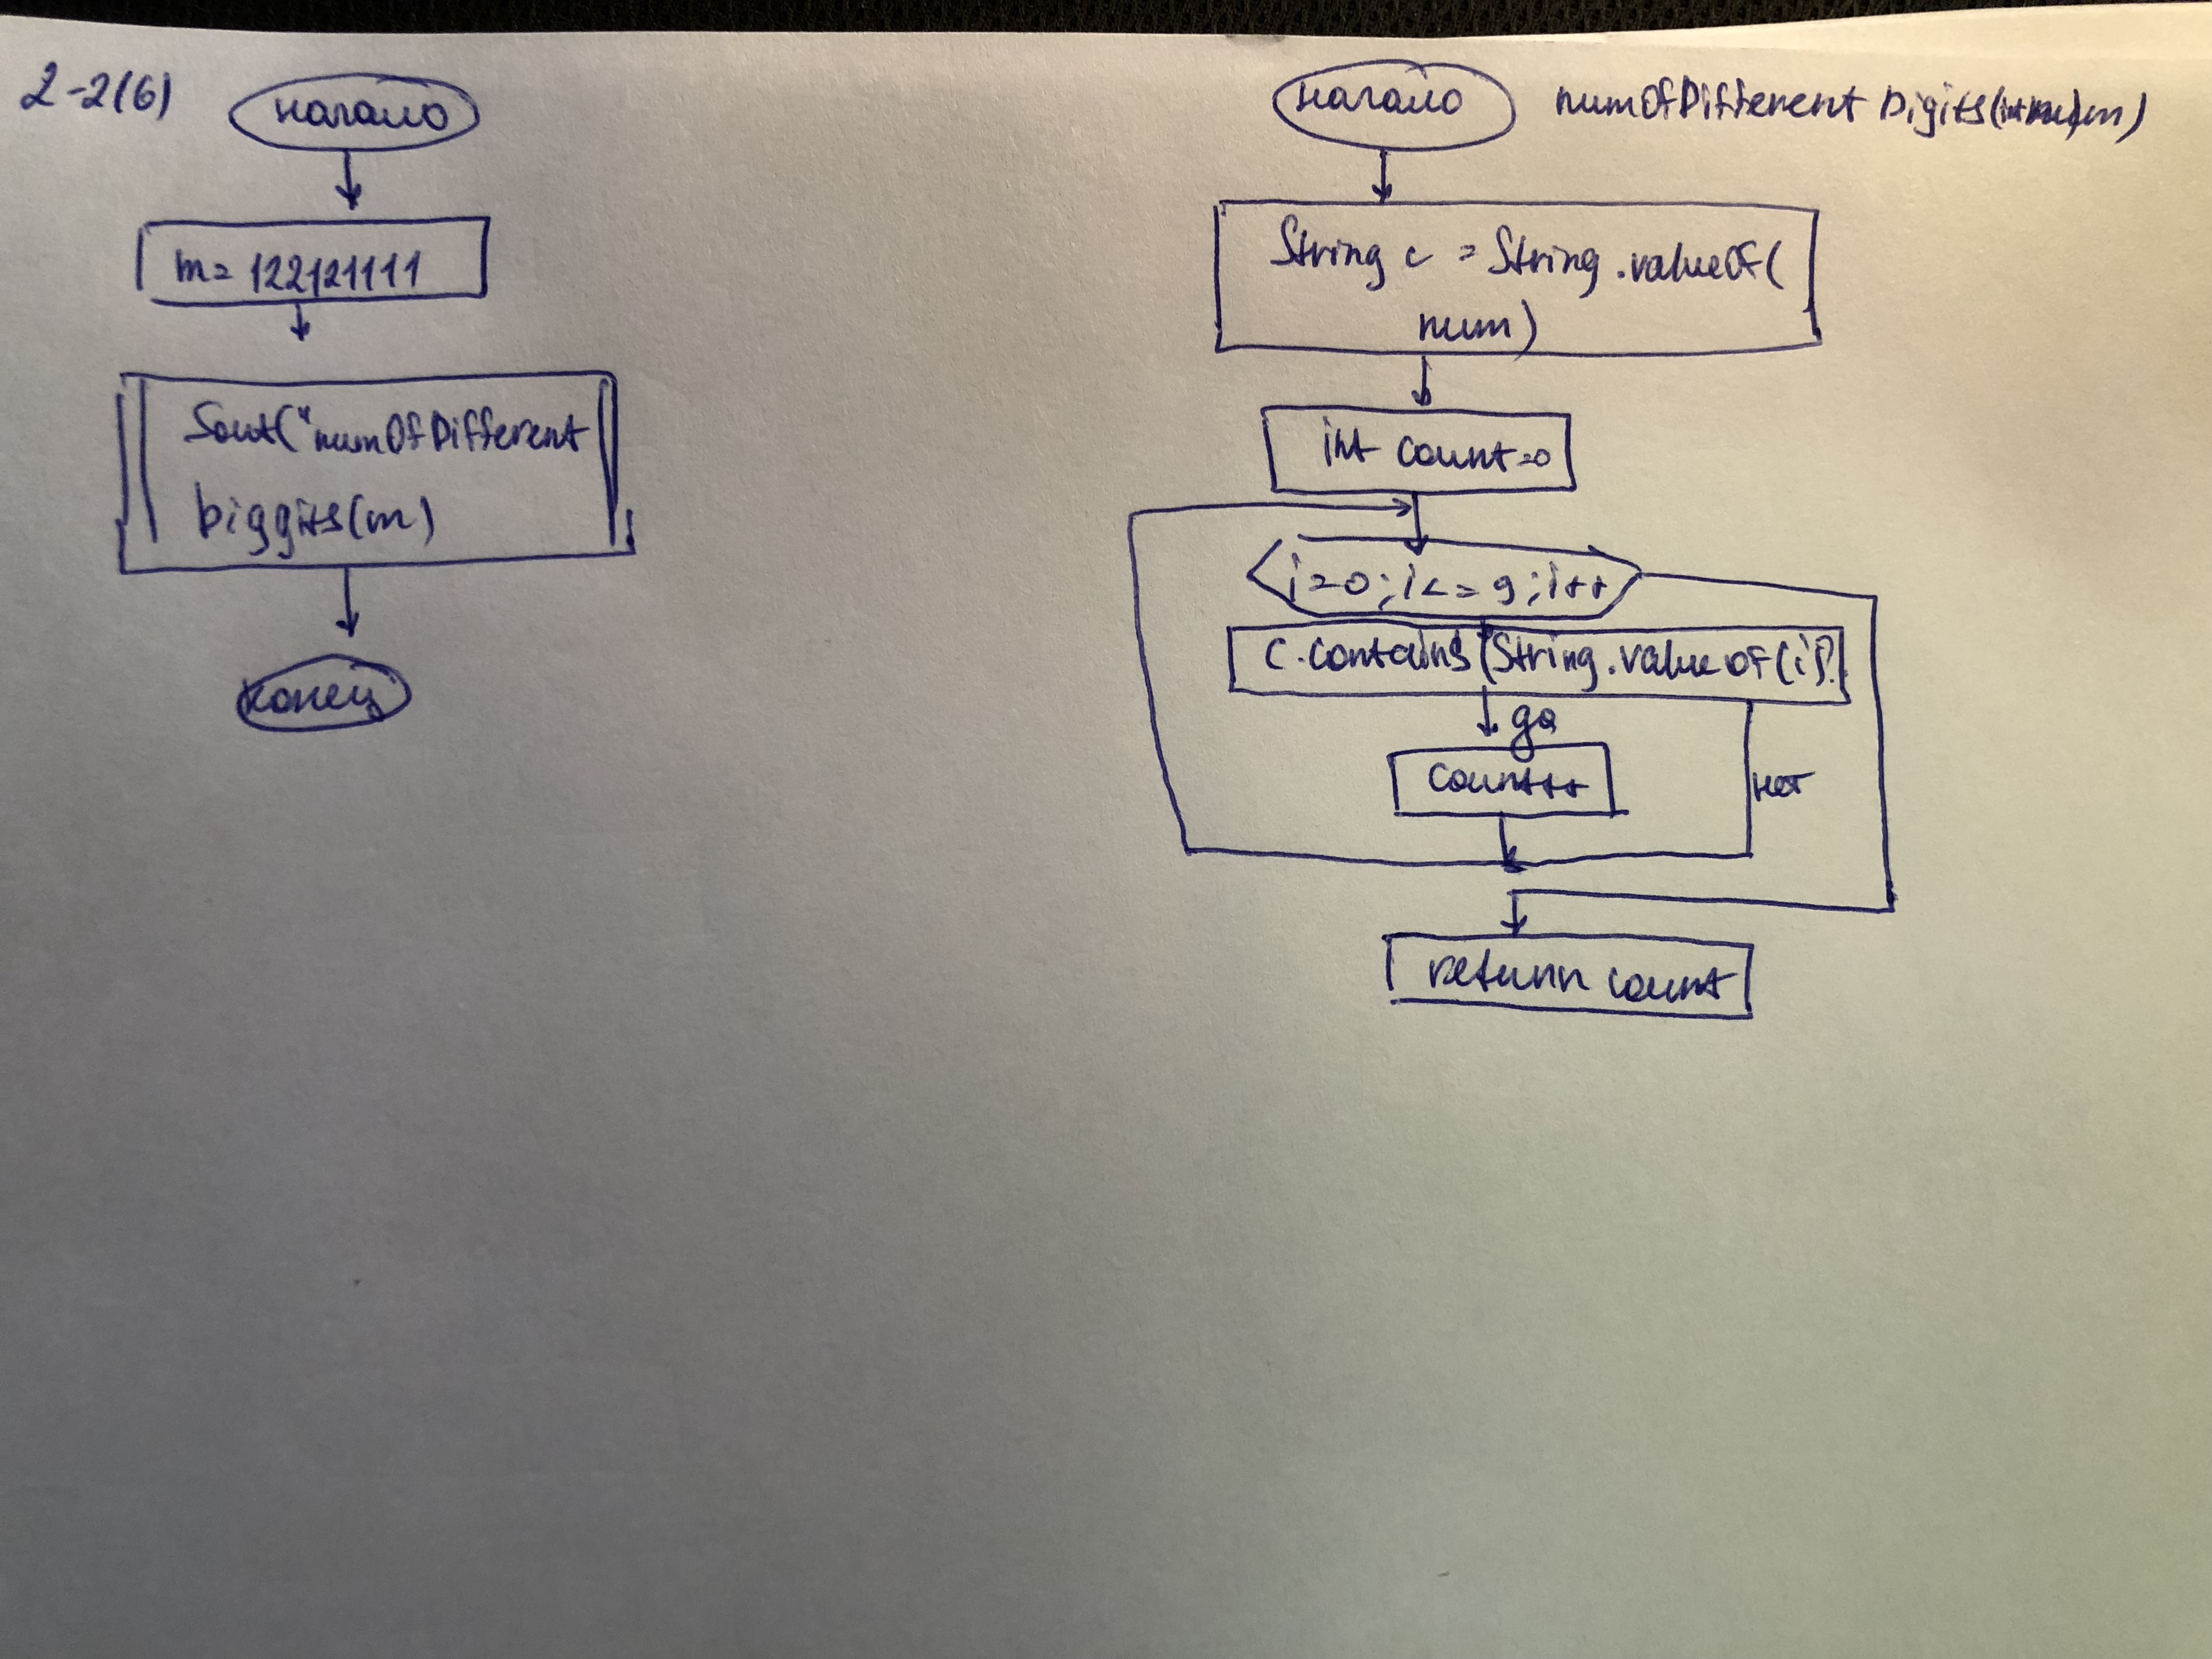 2-2(6)
начало
m= 122121111
Sout("numOfDifferent
Diggits(m)
конец
начало
numOfDifferent Digits(
String c = String.valueOf(
num)
int count=0
i=0; i<=9; i++
c.contains(String.valueOf(i)?
да
count++
нет
return count